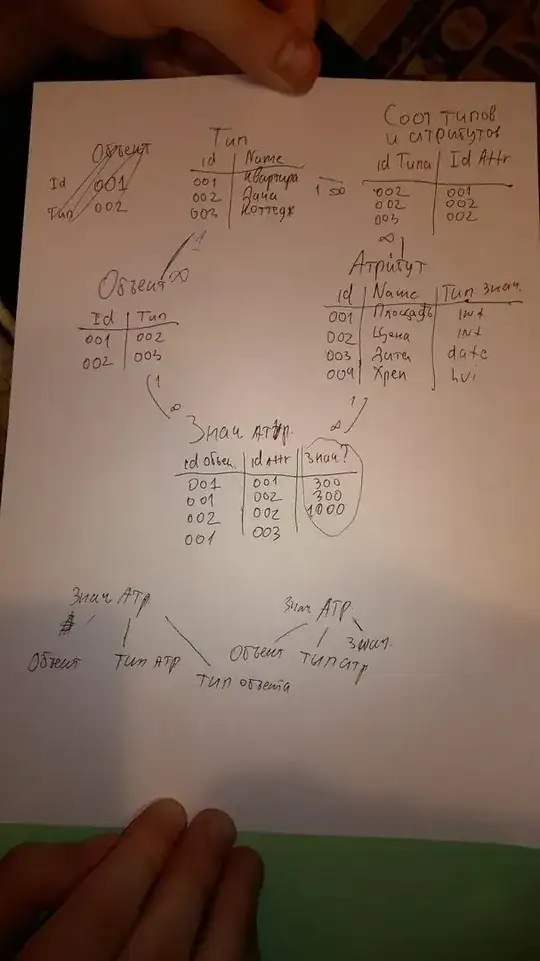 Объект
Id 001
Тип 002
Тип
id Name
001 Квартира
002 Дача
003 Коттедж
1 ∞
Соот типов
и атрибутов
id Типа Id Attr
002 001
002 002
003 002
1
∞
Объект
Id Тип
001 002
002 003
∞
1
Атрибут
id Name Тип знач.
001 Площадь int
002 Цена int
003 Дата date
004 Хрен
1
∞
1
∞
Знач Атр.
id Объек. id Attr Знач?
001 001 300
001 002 300
002 002 1000
001 003
Знач Атр
Объект Тип Атр
Тип объекта
Знач Атр.
Объект Тип атр Знач.